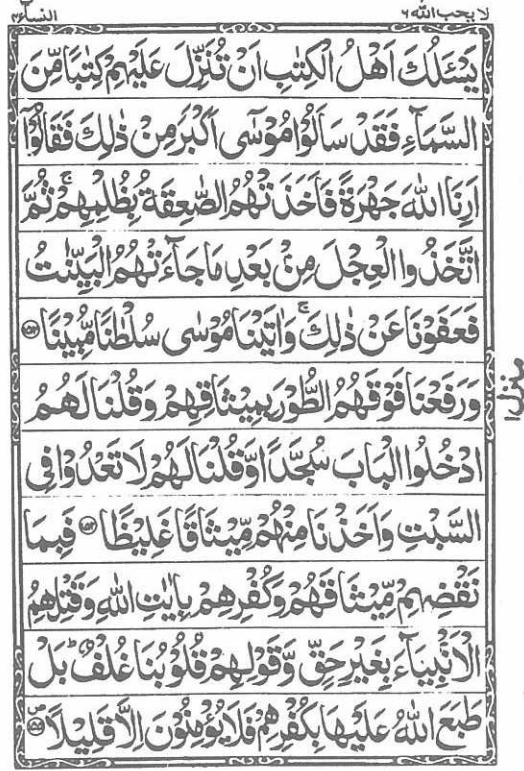 لا یحب اللہ ۶
النساء ۴
يَسْـَٔلُكَ اَهْلُ الْكِتٰبِ اَنْ تُنَزِّلَ عَلَيْهِمْ كِتٰبًا مِّنَ
السَّمَآءِ فَقَدْ سَاَلُوْا مُوْسٰٓى اَكْبَرَ مِنْ ذٰلِكَ فَقَالُوْٓا
اَرِنَا اللّٰهَ جَهْرَةً فَاَخَذَتْهُمُ الصّٰعِقَةُ بِظُلْمِهِمْ ۚ ثُمَّ
اتَّخَذُوا الْعِجْلَ مِنْۢ بَعْدِ مَا جَآءَتْهُمُ الْبَيِّنٰتُ
فَعَفَوْنَا عَنْ ذٰلِكَ ۚ وَاٰتَيْنَا مُوْسٰى سُلْطٰنًا مُّبِيْنًا ۝۱۵۳
وَرَفَعْنَا فَوْقَهُمُ الطُّوْرَ بِمِيْثَاقِهِمْ وَقُلْنَا لَهُمُ
ادْخُلُوا الْبَابَ سُجَّدًا وَّقُلْنَا لَهُمْ لَا تَعْدُوْا فِى
السَّبْتِ وَاَخَذْنَا مِنْهُمْ مِّيْثَاقًا غَلِيْظًا ۝۱۵۴ فَبِمَا
نَقْضِهِمْ مِّيْثَاقَهُمْ وَكُفْرِهِمْ بِاٰيٰتِ اللّٰهِ وَقَتْلِهِمُ
الْاَنْۢبِيَآءَ بِغَيْرِ حَقٍّ وَّقَوْلِهِمْ قُلُوْبُنَا غُلْفٌ ؕ بَلْ
طَبَعَ اللّٰهُ عَلَيْهَا بِكُفْرِهِمْ فَلَا يُؤْمِنُوْنَ اِلَّا قَلِيْلًا ۝۱۵۵
منزل ۱